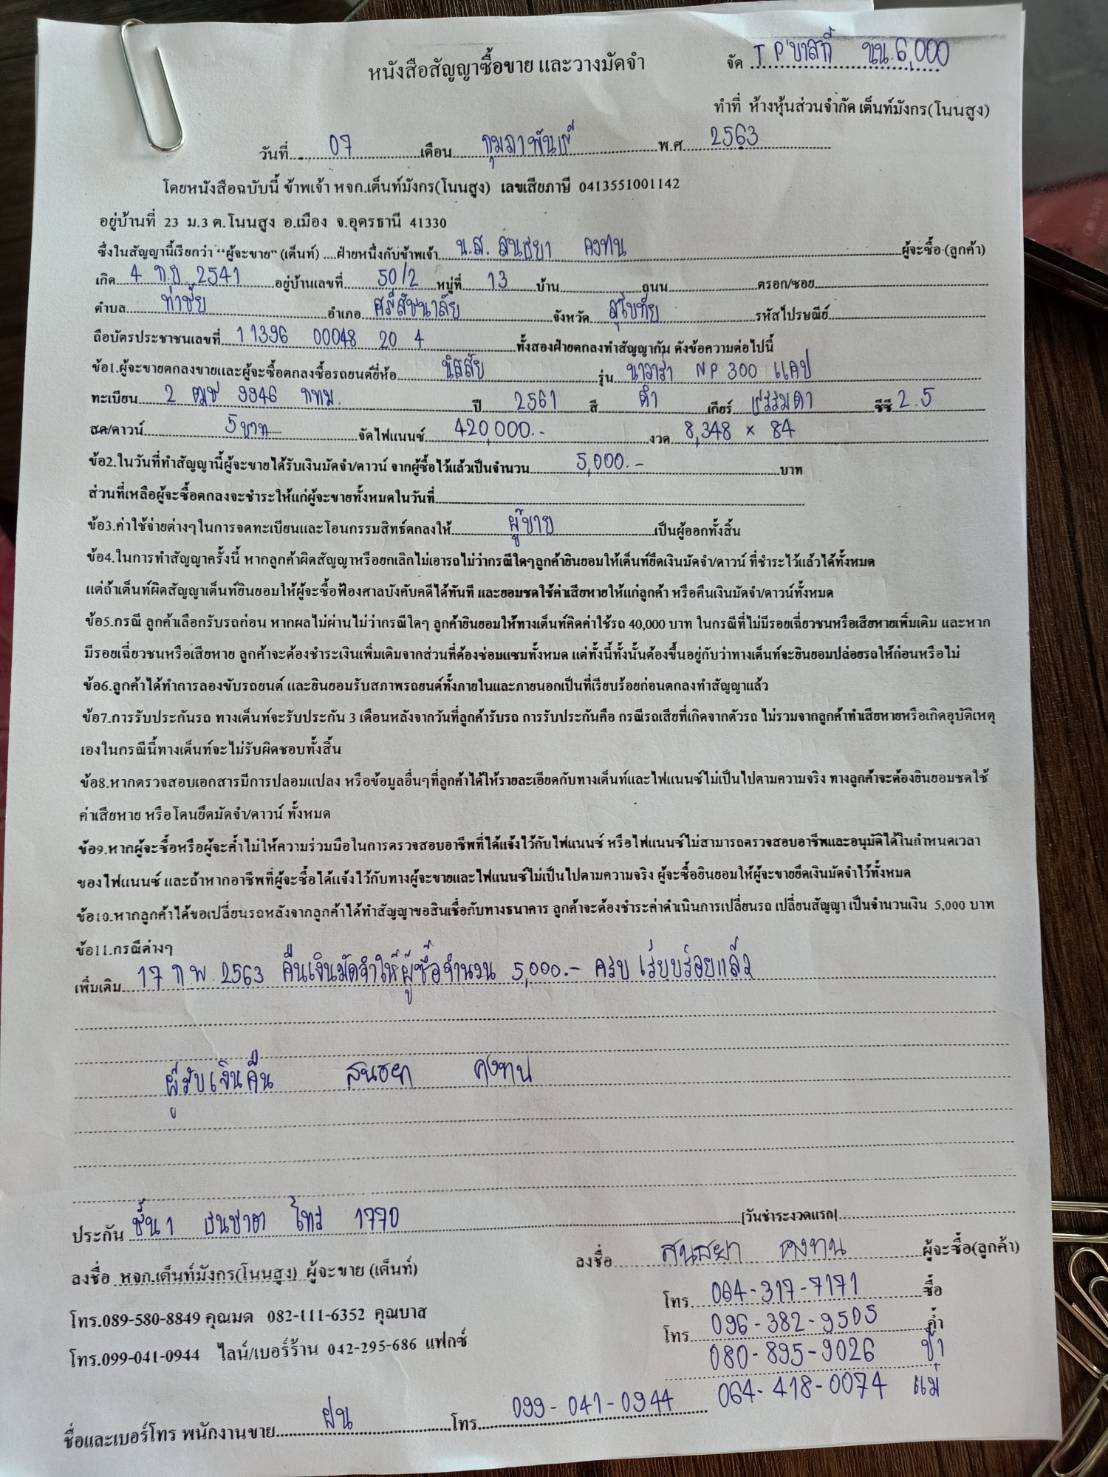 หนังสือสัญญาซื้อขาย และวางมัดจำ
จัด T P บาสกี้ นน.6,000
ทำที่ ห้างหุ้นส่วนจำกัด เต็นท์มังกร(โนนสูง)
วันที่ 07 เดือน กุมภาพันธ์ พ.ศ 2563
โดยหนังสือฉบับนี้ ข้าพเจ้า หจก.เต็นท์มังกร(โนนสูง) เลขเสียภาษี 0413551001142
อยู่บ้านที่ 23 ม.3 ต.โนนสูง อ.เมือง จ.อุดรธานี 41330
ซึ่งในสัญญานี้เรียกว่า "ผู้จะขาย" (เต็นท์) ....ฝ่ายหนึ่งกับข้าพเจ้า น.ส. สนธยา คงทน ผู้จะซื้อ (ลูกค้า)
เกิด 4 ก.ย 2541 อยู่บ้านเลขที่ 50/2 หมู่ที่ 13 บ้าน ถนน ตรอก/ซอย
ตำบล ท่าชัย อำเภอ ศรีสัชนาลัย จังหวัด สุโขทัย รหัสไปรษณีย์
ถือบัตรประชาชนเลขที่ 1 1396 00048 20 4 ทั้งสองฝ่ายตกลงทำสัญญากัน ดังข้อความต่อไปนี้
ข้อ1.ผู้จะขายตกลงขายและผู้จะซื้อตกลงซื้อรถยนต์ยี่ห้อ นิสสัน รุ่น นาวาร่า NP 300 แคป
ทะเบียน 2 ฒฆ 9946 กทม. ปี 2561 สี ดำ เกียร์ ธรรมดา ซีซี 2.5
สด/ดาวน์ 5 บาท จัดไฟแนนซ์ 420,000.- งวด 8,348 × 84
ข้อ2.ในวันที่ทำสัญญานี้ผู้จะขายได้รับเงินมัดจำ/ดาวน์ จากผู้ซื้อไว้แล้วเป็นจำนวน 5,000.- บาท
ส่วนที่เหลือผู้จะซื้อตกลงจะชำระให้แก่ผู้จะขายทั้งหมดในวันที่
ข้อ3.ค่าใช้จ่ายต่างๆในการจดทะเบียนและโอนกรรมสิทธ์ตกลงให้ ผู้ขาย เป็นผู้ออกทั้งสิ้น
ข้อ4.ในการทำสัญญาครั้งนี้ หากลูกค้าผิดสัญญาหรือยกเลิกไม่เอารถไม่ว่ากรณีใดๆลูกค้ายินยอมให้เต็นท์ยึดเงินมัดจำ/ดาวน์ ที่ชำระไว้แล้วได้ทั้งหมด
แต่ถ้าเต็นท์ผิดสัญญาเต็นท์ยินยอมให้ผู้จะซื้อฟ้องศาลบังคับคดีได้ทันที และยอมชดใช้ค่าเสียหายให้แก่ลูกค้า หรือคืนเงินมัดจำ/ดาวน์ทั้งหมด
ข้อ5.กรณี ลูกค้าเลือกรับรถก่อน หากผลไม่ผ่านไม่ว่ากรณีใดๆ ลูกค้ายินยอมให้ทางเต็นท์คิดค่าใช้รถ 40,000 บาท ในกรณีที่ไม่มีรอยเฉี่ยวชนหรือเสียหายเพิ่มเติม และหาก
มีรอยเฉี่ยวชนหรือเสียหาย ลูกค้าจะต้องชำระเงินเพิ่มเติมจากส่วนที่ต้องซ่อมแซมทั้งหมด แต่ทั้งนี้ทั้งนั้นต้องขึ้นอยู่กับว่าทางเต็นท์จะยินยอมปล่อยรถให้ก่อนหรือไม่
ข้อ6.ลูกค้าได้ทำการลองขับรถยนต์ และยินยอมรับสภาพรถยนต์ทั้งภายในและภายนอกเป็นที่เรียบร้อยก่อนตกลงทำสัญญาแล้ว
ข้อ7.การรับประกันรถ ทางเต็นท์จะรับประกัน 3 เดือนหลังจากวันที่ลูกค้ารับรถ การรับประกันคือ กรณีรถเสียที่เกิดจากตัวรถ ไม่รวมจากลูกค้าทำเสียหายหรือเกิดอุบัติเหตุ
เองในกรณีนี้ทางเต็นท์จะไม่รับผิดชอบทั้งสิ้น
ข้อ8.หากตรวจสอบเอกสารมีการปลอมแปลง หรือข้อมูลอื่นๆที่ลูกค้าได้ให้รายละเอียดกับทางเต็นท์และไฟแนนซ์ไม่เป็นไปตามความจริง ทางลูกค้าจะต้องยินยอมชดใช้
ค่าเสียหาย หรือโดนยึดมัดจำ/ดาวน์ ทั้งหมด
ข้อ9.หากผู้จะซื้อหรือผู้จะค้ำไม่ให้ความร่วมมือในการตรวจสอบอาชีพที่ได้แจ้งไว้กับไฟแนนซ์ หรือไฟแนนซ์ไม่สามารถตรวจสอบอาชีพและอนุมัติได้ในกำหนดเวลา
ของไฟแนนซ์ และถ้าหากอาชีพที่ผู้จะซื้อได้แจ้งไว้กับทางผู้จะขายและไฟแนนซ์ไม่เป็นไปตามความจริง ผู้จะซื้อยินยอมให้ผู้จะขายยึดเงินมัดจำไว้ทั้งหมด
ข้อ10.หากลูกค้าได้ขอเปลี่ยนรถหลังจากลูกค้าได้ทำสัญญาขอสินเชื่อกับทางธนาคาร ลูกค้าจะต้องชำระค่าดำเนินการเปลี่ยนรถ เปลี่ยนสัญญา เป็นจำนวนเงิน 5,000 บาท
ข้อ11.กรณีต่างๆ
เพิ่มเติม 17 ก.พ. 2563 คืนเงินมัดจำให้ผู้ซื้อจำนวน 5,000.- ครบ เรียบร้อยแล้ว
ผู้รับเงินคืน สนธยา คงทน
ประกัน ชั้น 1 ธนชาต โทร 1770 [วันชำระงวดแรก]
ลงชื่อ หจก.เต็นท์มังกร(โนนสูง) ผู้จะขาย (เต็นท์) ลงชื่อ สนธยา คงทน ผู้จะซื้อ(ลูกค้า)
โทร. 064-317-7171 ซื้อ
โทร.089-580-8849 คุณมด 082-111-6352 คุณบาส โทร. 096-382-9505 ค้ำ
โทร.099-041-0944 ไลน์/เบอร์ร้าน 042-295-686 แฟกซ์ 080-895-9026
064-418-0074 แม่
ชื่อและเบอร์โทร พนักงานขาย ฝน โทร. 099-041-0944